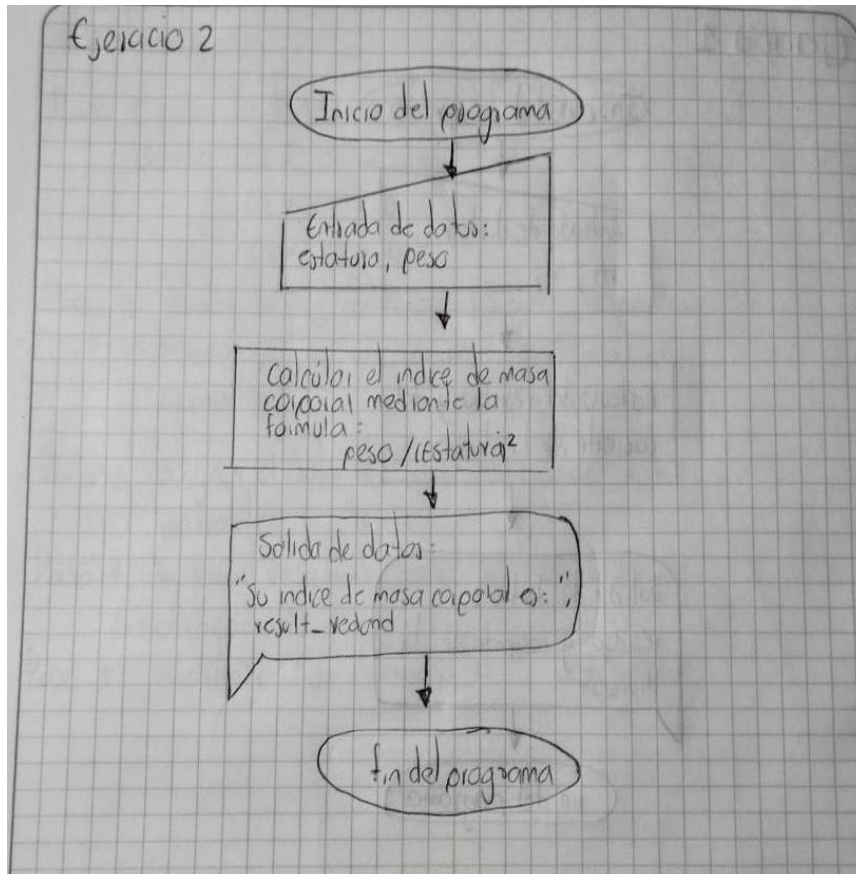 Ejercicio 2
Inicio del programa
Entrada de datos:
estatura, peso
Calcular el indice de masa
corporal mediante la
formula:
peso /(Estatura)²
Salida de datos:
"Su indice de masa corporal es: ",
result_redond
fin del programa